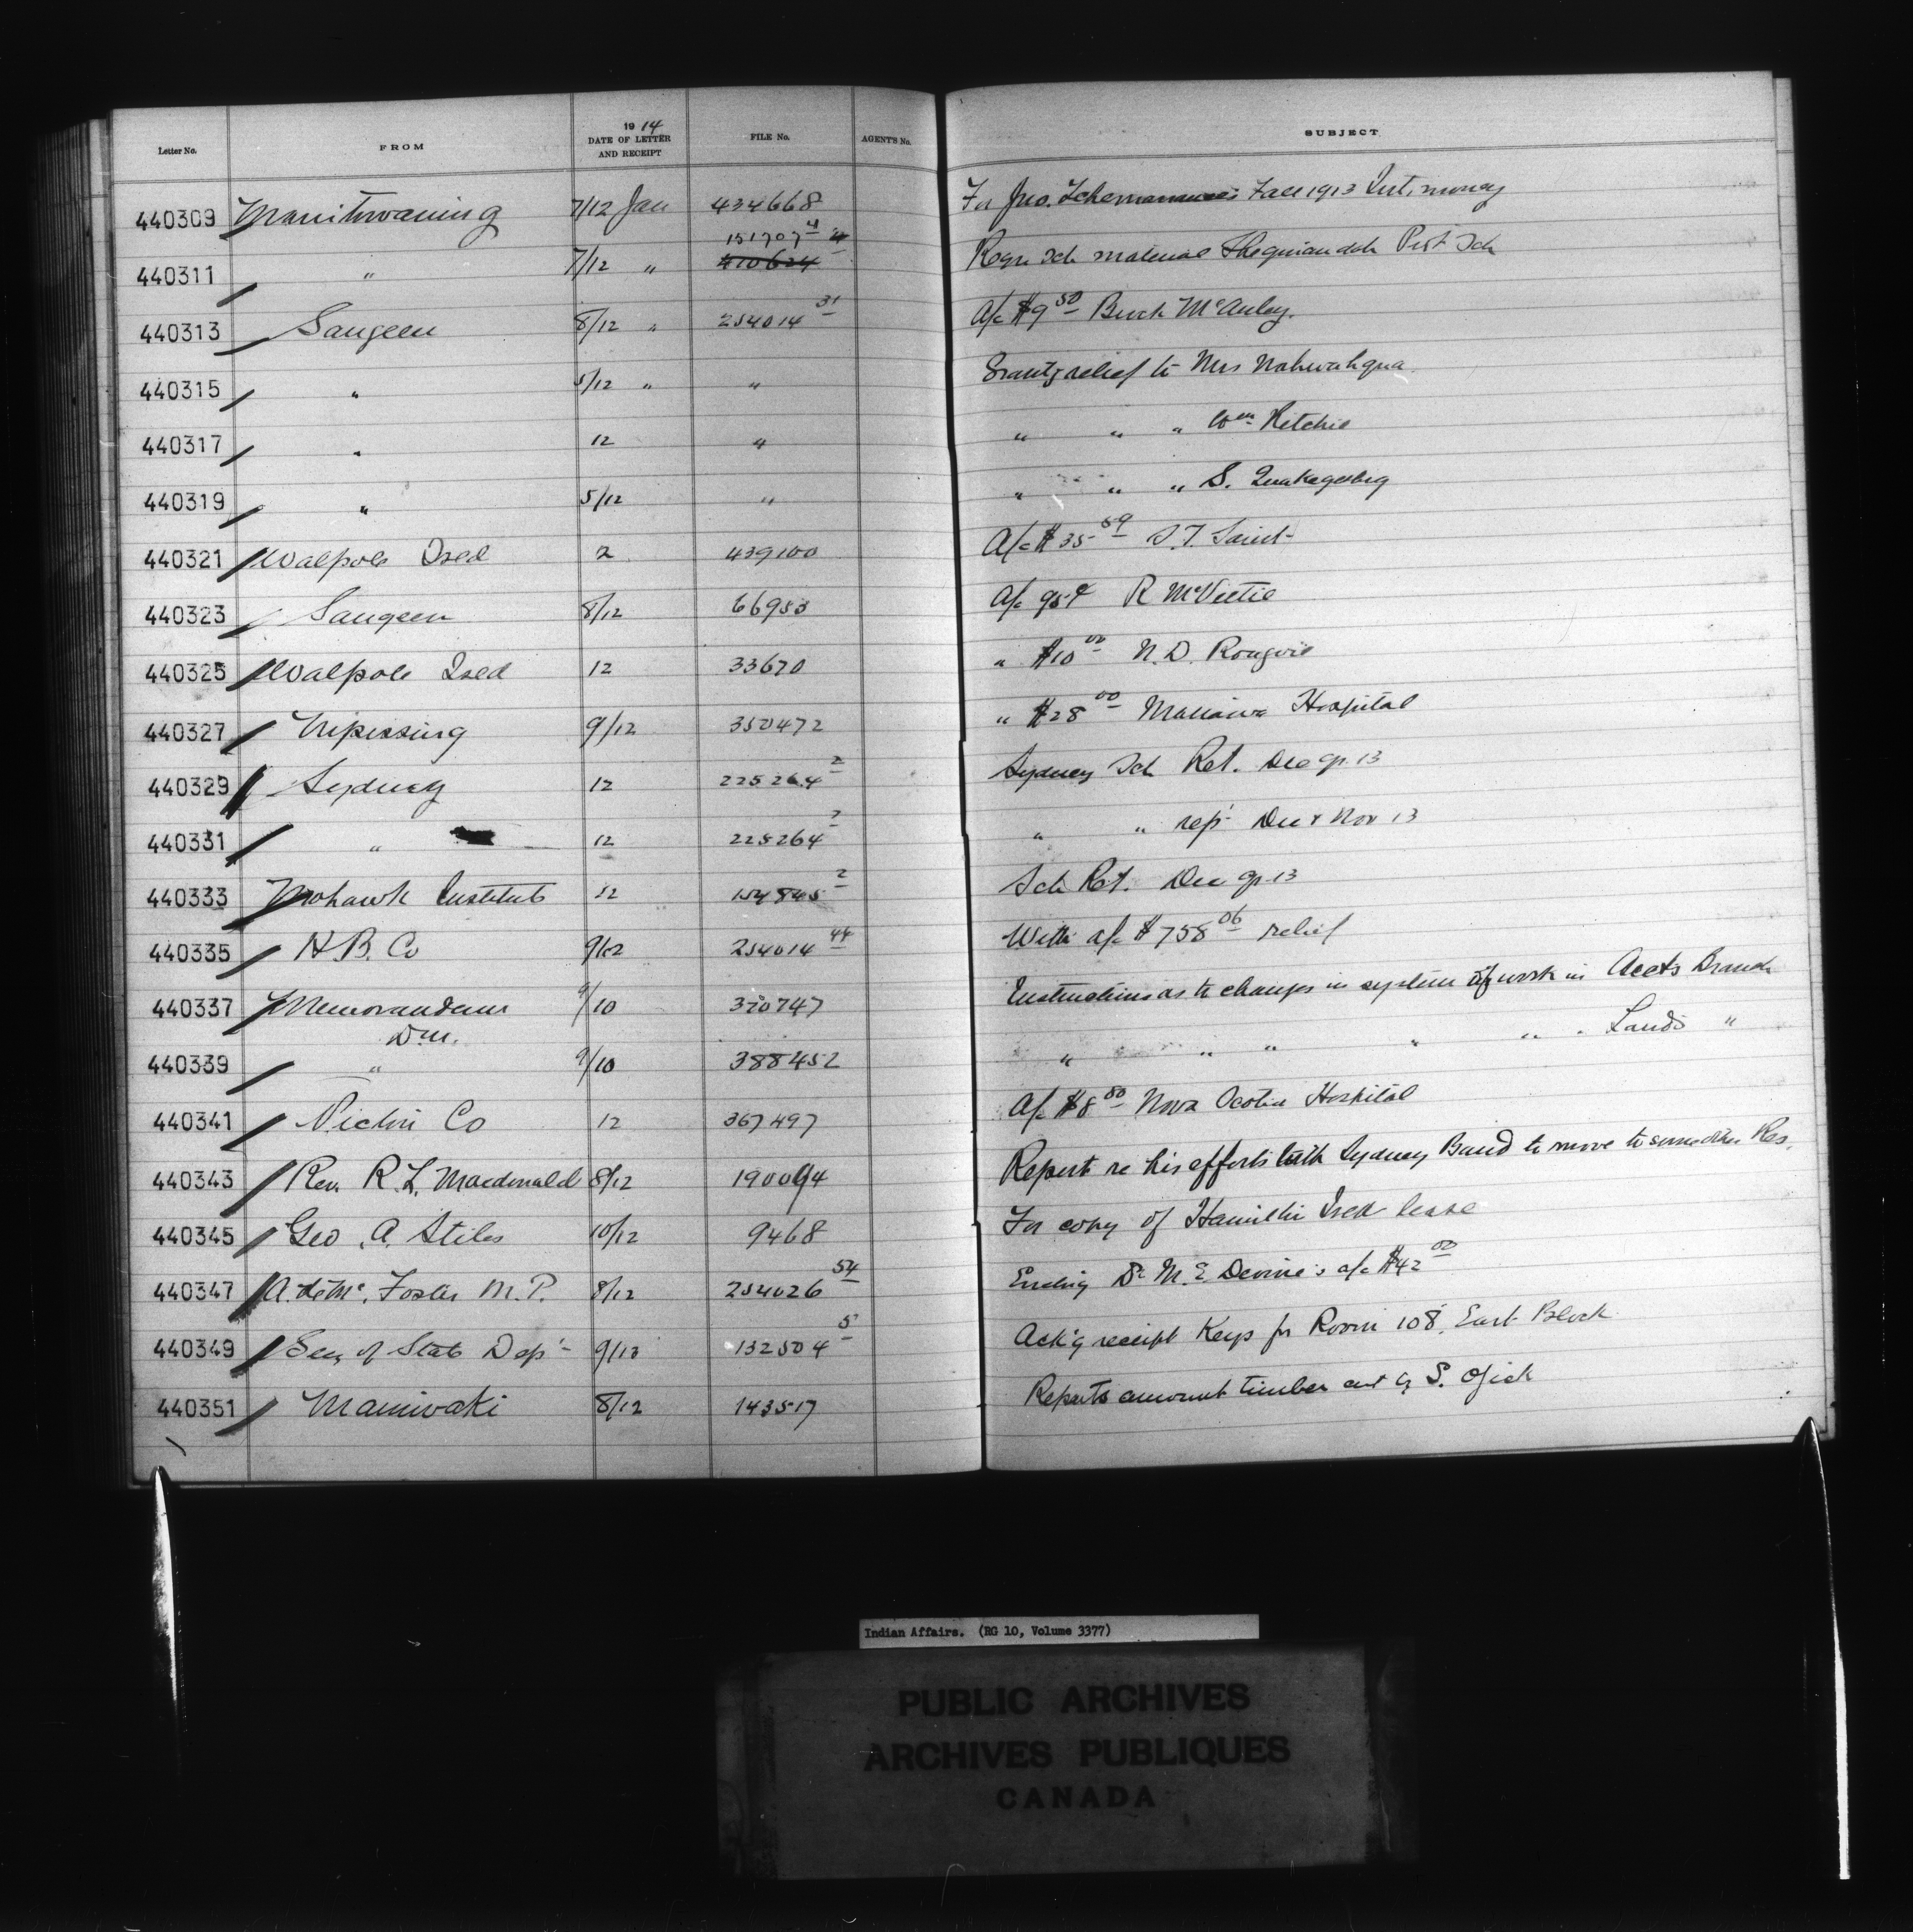 Letter No. FROM 1914 DATE OF LETTER AND RECEIPT FILE No. AGENT'S No. SUBJECT
440309 Manitowaning 7/12 Jan 434668 For Jno. Fall 1913 Int. money
151707 4
440311 " 7/12 " 410624 Reqn Sch material Sheguiandah Prot Sch
440313 Saugeen 8/12 " 254014 31 A/c $9 50 Buck McAulay.
440315 " 5/12 " " Grants relief to Mrs Nahwahqua
440317 " 12 " " " " Wm Ritchie
440319 " 5/12 " " " " S.
440321 Walpole Isld 2 439100 A/c $35 59
440323 Saugeen 8/12 66953 A/c 95¢ R McVittie
440325 Walpole Isld 12 33670 " $10 00 N. D. Rougvie
440327 Nipissing 9/12 350472 " $28 00 Mattawa Hospital
440329 Sydney 12 225264 2 Sydney Sch Ret. Dec qr. 13
440331 " 12 225264 2 " " rept Dec & Nov 13
440333 Mohawk Institute 12 154845 2 Sch Ret. Dec qr 13
440335 H. B. Co 9/12 254014 44 With a/c $758 06 relief
440337 Memorandum 9/10 320747 Instructions as to changes in system of work in Accts Branch
Dm.
440339 " 9/10 388452 " " " " " " Lands "
440341 Pictou Co 12 367497 A/c $8 80 Nova Scotia Hospital
440343 Rev. R. L. Macdonald 8/12 190094 Report re his efforts with Sydney Band to move to some other Res.
440345 Geo. A. Stiles 10/12 9468 For copy of Hamilton Isld lease
440347 A. deMc. Foster M. P. 8/12 254026 54 Encling Dr M. E. Devine's a/c $42 00
440349 Secy of State Dept 9/13 132504 5 Ack'g receipt Keys for Room 108, East Block
440351 Maniwaki 8/12 143517 Reports amount timber cut by S. Ojick
Indian Affairs. (RG 10, Volume 3377)
PUBLIC ARCHIVES
ARCHIVES PUBLIQUES
CANADA